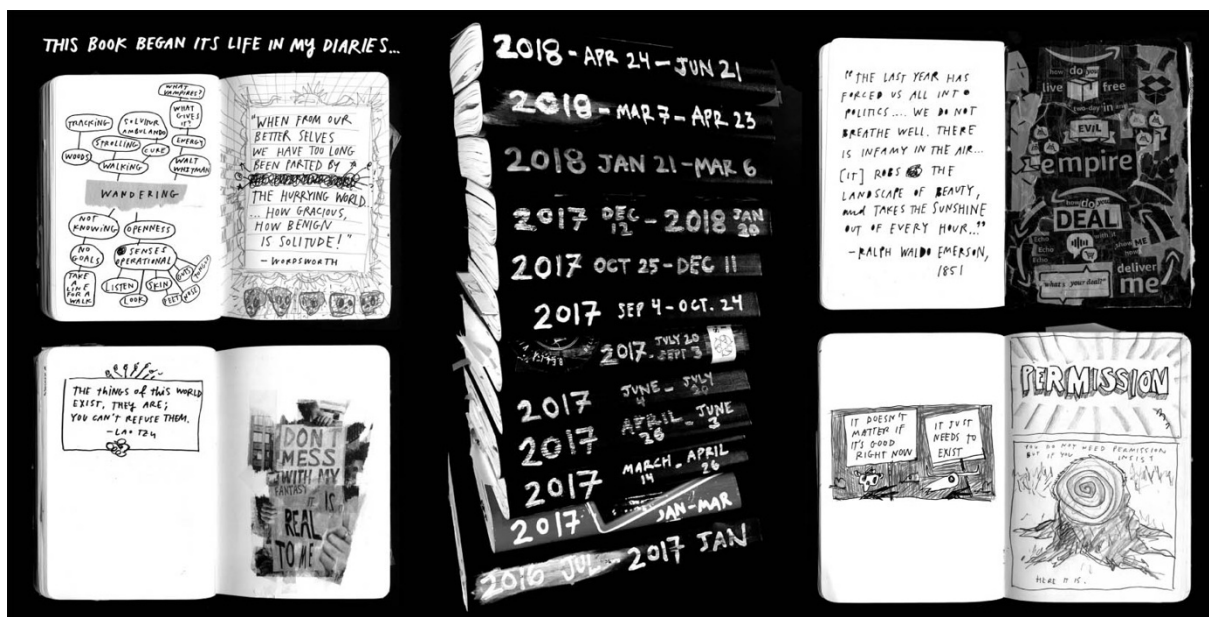 THIS BOOK BEGAN ITS LIFE IN MY DIARIES...
WHAT
VAMPIRES?
WHAT
GIVES
IT?
TRACKING
SOLVITUR
AMBULANDO
STROLLING
CURE
ENERGY
WOODS
WALKING
WALT
WHITMAN
WANDERING
NOT
KNOWING
OPENNESS
NO
GOALS
SENSES
OPERATIONAL
TAKE
A
LINE
FOR A
WALK
LISTEN
LOOK
SKIN
FEET
NOSE
GUTS
TONGUE
"WHEN FROM OUR
BETTER SELVES
WE HAVE TOO LONG
BEEN PARTED BY
THE HURRYING WORLD
... HOW GRACIOUS,
HOW BENIGN
IS SOLITUDE!"
- WORDSWORTH
THE THINGS OF THIS WORLD
EXIST, THEY ARE;
YOU CAN'T REFUSE THEM.
- LAO TZU
DON'T
MESS
WITH MY
FANTASY
IT IS
REAL
TO ME
2018 - APR 24 - JUN 21
2018 - MAR 7 - APR 23
2018 JAN 21 - MAR 6
2017 DEC 12 - 2018 JAN 20
2017 OCT 25 - DEC 11
2017 SEP 4 - OCT. 24
2017. JULY 20 SEPT 3
2017 JUNE 4 - JULY 20
2017 APRIL 26 - JUNE 3
2017 MARCH 14 - APRIL 26
2017 JAN - MAR
2016 JUL - 2017 JAN
"THE LAST YEAR HAS
FORCED US ALL INTO
POLITICS.... WE DO NOT
BREATHE WELL. THERE
IS INFAMY IN THE AIR...
[IT] ROBS THE
LANDSCAPE OF BEAUTY,
and TAKES THE SUNSHINE
OUT OF EVERY HOUR..."
- RALPH WALDO EMERSON,
1851
how do you
live free
two-day in
EVIL
empire
how do you
DEAL
with it
Echo
Echo
Echo
show ME
how
deliver
me
"what's your deal?"
IT DOESN'T
MATTER IF
IT'S GOOD
RIGHT NOW
IT JUST
NEEDS TO
EXIST
PERMISSION
YOU DO NOT NEED PERMISSION
BUT IF YOU INSIST
HERE IT IS.